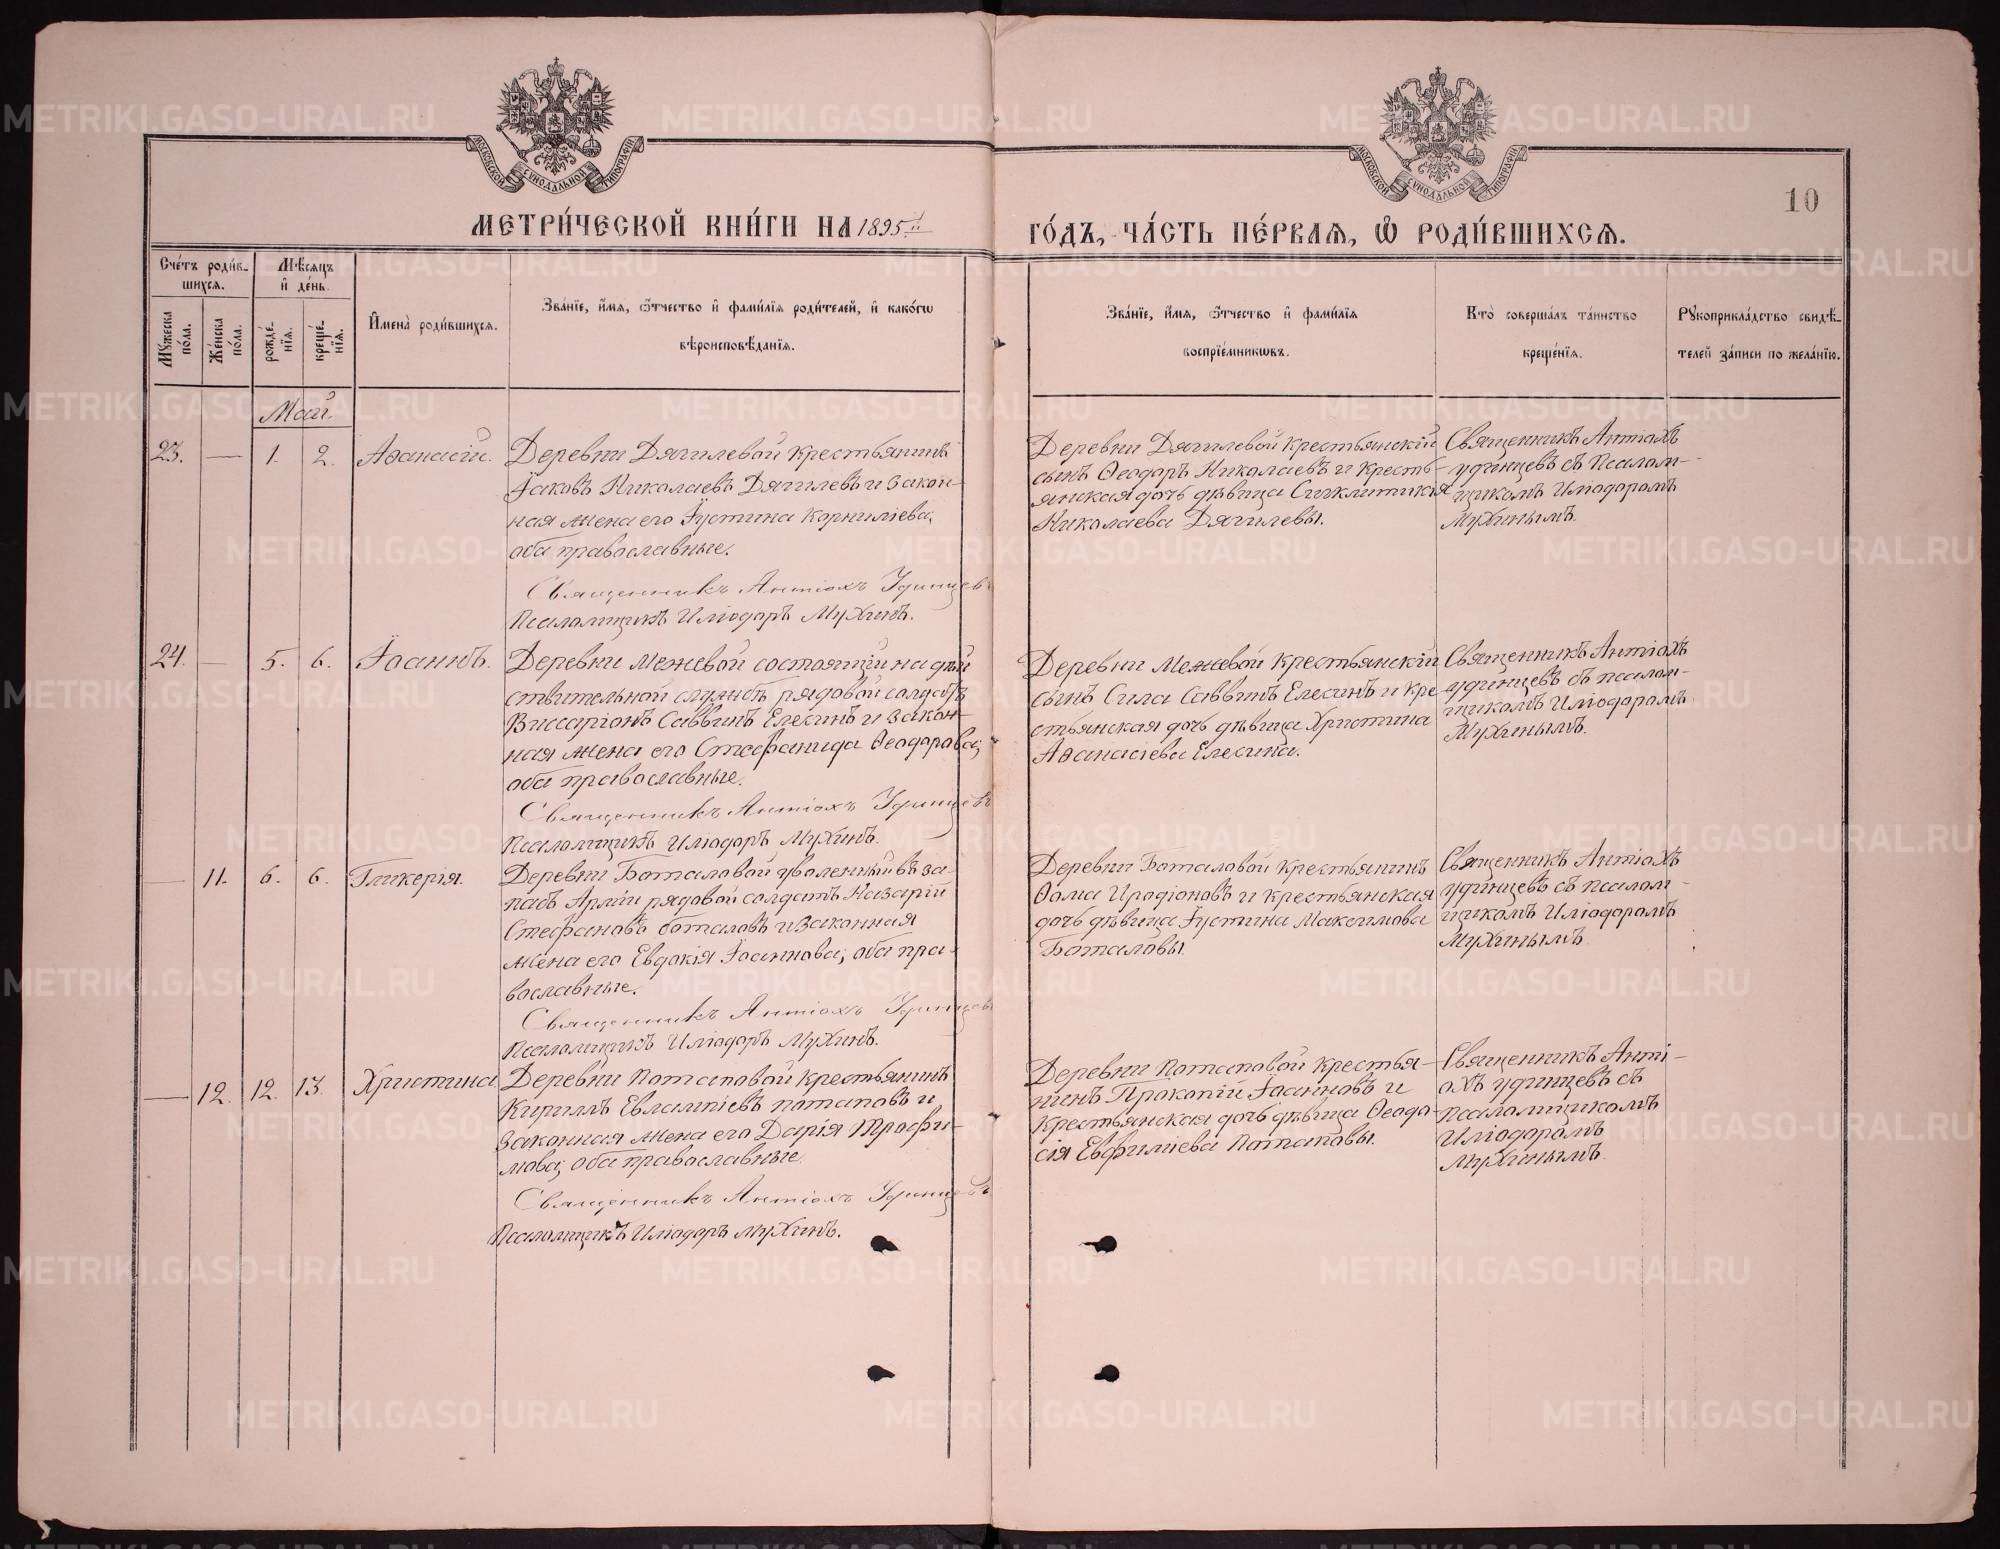 МОСКОВСКОЙ СѴНОДАЛЬНОЙ ТИПОГРАФІИ
МОСКОВСКОЙ СѴНОДАЛЬНОЙ ТИПОГРАФІИ
10
МЕТРИ́ЧЕСКОЙ КНИ́ГИ НА 1895й
ГО́ДЪ, ЧА́СТЬ ПЕ́РВАЯ, Ѽ РОДИ́ВШИХСЯ.
Сче́тъ роди́в-
шихся.
Мѣ́сяцъ
и҆ де́нь.
Му́жеска
по́ла.
Же́нска
по́ла.
рожде́-
нїя.
креще́-
нїя.
И҆мена̀ роди́вшихся.
Зва́нїе, и҆́мя, ѻ҆́тчество и҆ фами́лїя роди́телей, и҆ како́гѡ
вѣроисповѣ́данїя.
Зва́нїе, и҆́мя, ѻ҆́тчество и҆ фами́лїя
воспрїе́мникѡвъ.
Кто̀ соверша́лъ та́инство
креще́нїя.
Рукоприкла́дство свидѣ́-
телей за́писи по жела́нїю.
Май.
23. — 1. 2. Аѳанасій.
Деревни Дягилевой крестьянинъ
Іаковъ Николаевъ Дягилевъ и закон-
ная жена его Іустина Корниліева,
оба православные.
Священникъ Антіохъ Удинцевъ
Псаломщикъ Иліодоръ Мухинъ.
Деревни Дягилевой крестьянскій
сынъ Ѳеодоръ Николаевъ и кресть-
янская дочь дѣвица Синклитикія
Николаева Дягилевы.
Священникъ Антіохъ
Удинцевъ съ псалом-
щикомъ Иліодоромъ
Мухинымъ.
24. — 5. 6. Іоаннъ.
Деревни Межевой состоящій на дѣй
ствительной службѣ рядовой солдатъ
Виссаріонъ Саввинъ Елесинъ и закон-
ная жена его Стефанида Ѳеодорова;
оба православные.
Священникъ Антіохъ Удинцевъ
Псаломщикъ Иліодоръ Мухинъ.
Деревни Межевой крестьянскій
сынъ Сила Саввинъ Елесинъ и кре
стьянская дочь дѣвица Христина
Аѳанасіева Елесина.
Священникъ Антіохъ
Удинцевъ съ псалом-
щикомъ Иліодоромъ
Мухинымъ.
— 11. 6. 6. Гликерія.
Деревни Боталовой уволенный въ за-
пасъ Арміи рядовой солдатъ Назарій
Стефановъ Боталовъ и законная
жена его Евдокія Іоаннова; оба пра-
вославные.
Священникъ Антіохъ Удинцевъ
Псаломщикъ Иліодоръ Мухинъ.
Деревни Боталовой крестьянинъ
Ѳома Иродіоновъ и крестьянская
дочь дѣвица Іустина Максимова
Боталовы.
Священникъ Антіохъ
Удинцевъ съ псалом-
щикомъ Иліодоромъ
Мухинымъ.
— 12. 12. 13. Христина
Деревни Потаповой крестьянинъ
Кириллъ Евлампіевъ Потаповъ и
законная жена его Дарія Трофи-
мова; оба православные.
Священникъ Антіохъ Удинцевъ
Псаломщикъ Иліодоръ Мухинъ.
Деревни Потаповой крестья-
нинъ Прокопій Іоанновъ и
крестьянская дочь дѣвица Ѳеодо-
сія Евфиміева Потаповы.
Священникъ Анті-
охъ Удинцевъ съ
псаломщикомъ
Иліодоромъ
Мухинымъ.
METRIKI.GASO-URAL.RU